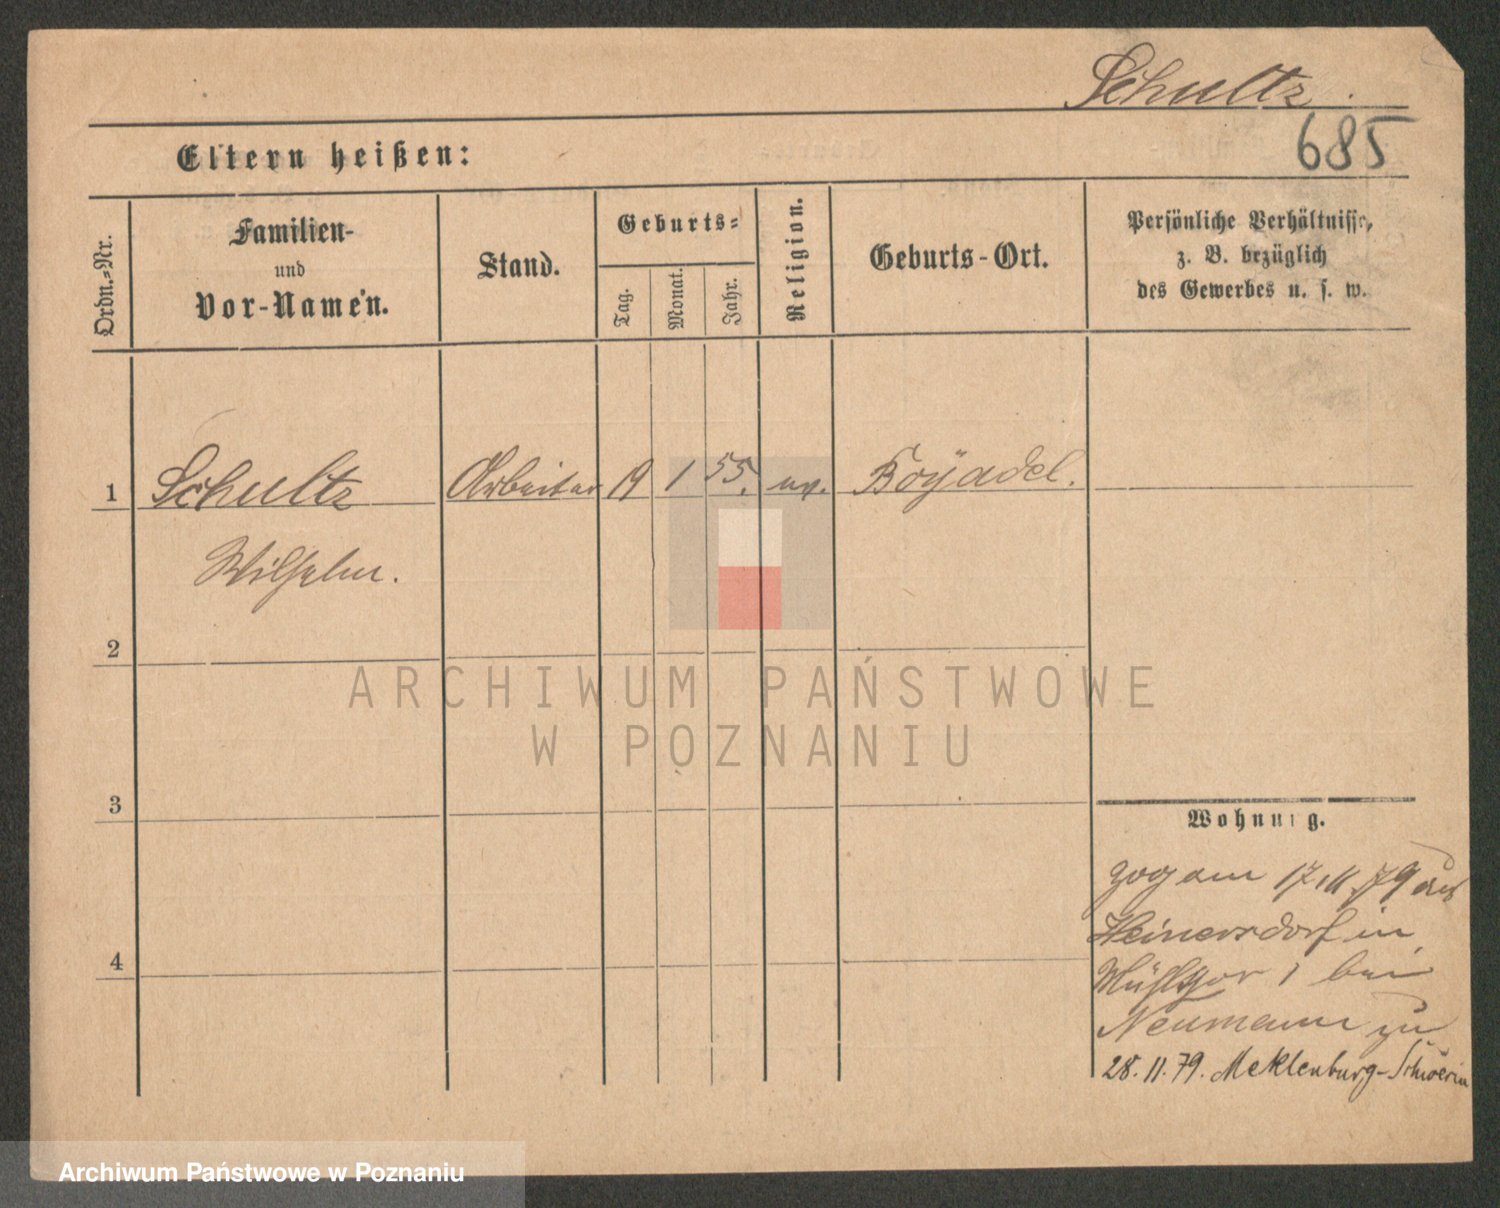 Schultz.
685
Eltern heißen:
Ordn.=Nr.
Familien-
und
Vor-Namen.
Stand.
Geburts=
Tag.
Monat.
Jahr.
Religion.
Geburts-Ort.
Persönliche Verhältnisse,
z. B. bezüglich
des Gewerbes u. s. w.
1 Schultz Arbeiter 19 1 55. ev. Boÿadel.
Wilhelm.
2
3
4
Wohnung.
zog am 17.11.79 aus
Heinersdorf in
Mühlthor 1 bei
Neumann zu
28.11.79. Meklenburg-Schwerin
ARCHIWUM PAŃSTWOWE
W POZNANIU
Archiwum Państwowe w Poznaniu